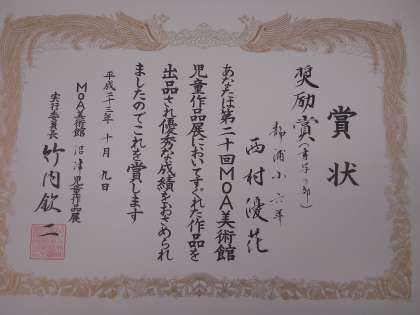 賞状
奨励賞(書写の部)
静浦小六年
西村優花
あなたは第二十回MOA美術館
児童作品展においてすぐれた作品を
出品され優秀な成績をおさめられ
ましたのでこれを賞します
平成二十三年十月九日
MOA美術館沼津児童作品展
実行委員長 竹内欽二